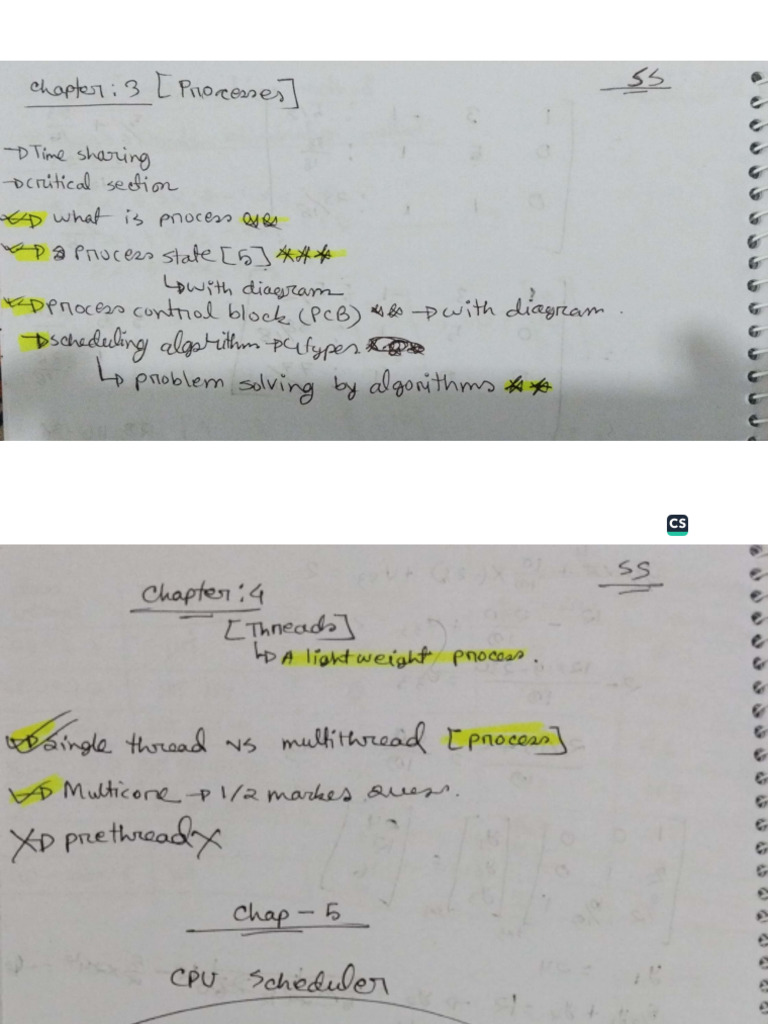 Chapter: 3 [Processes]
SS
→ Time sharing
→ critical section
→ what is process
→ Process state [5] ***
↳ with diagram
→ process control block (PCB) ** → with diagram.
→ scheduling algorithm → 4 types
↳ problem solving by algorithms **
CS
SS
Chapter: 4
[Threads]
↳ A lightweight process.
→ single thread vs multithread [process]
→ Multicore → 1/2 markes ques.
X→ prethread X
Chap - 5
CPU Scheduler